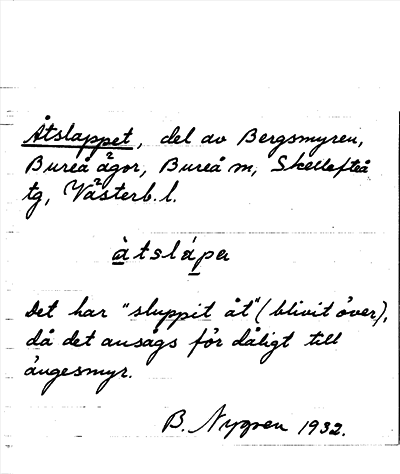 Åtslappet, del av Bergsmyren,
Bureå ägor, Bureå m, Skellefteå
tg, Västerb. l.
àtslápa
Det har "sluppit åt" (blivit över),
då det ansågs för dåligt till
ängesmyr.
B. Nygren 1932.